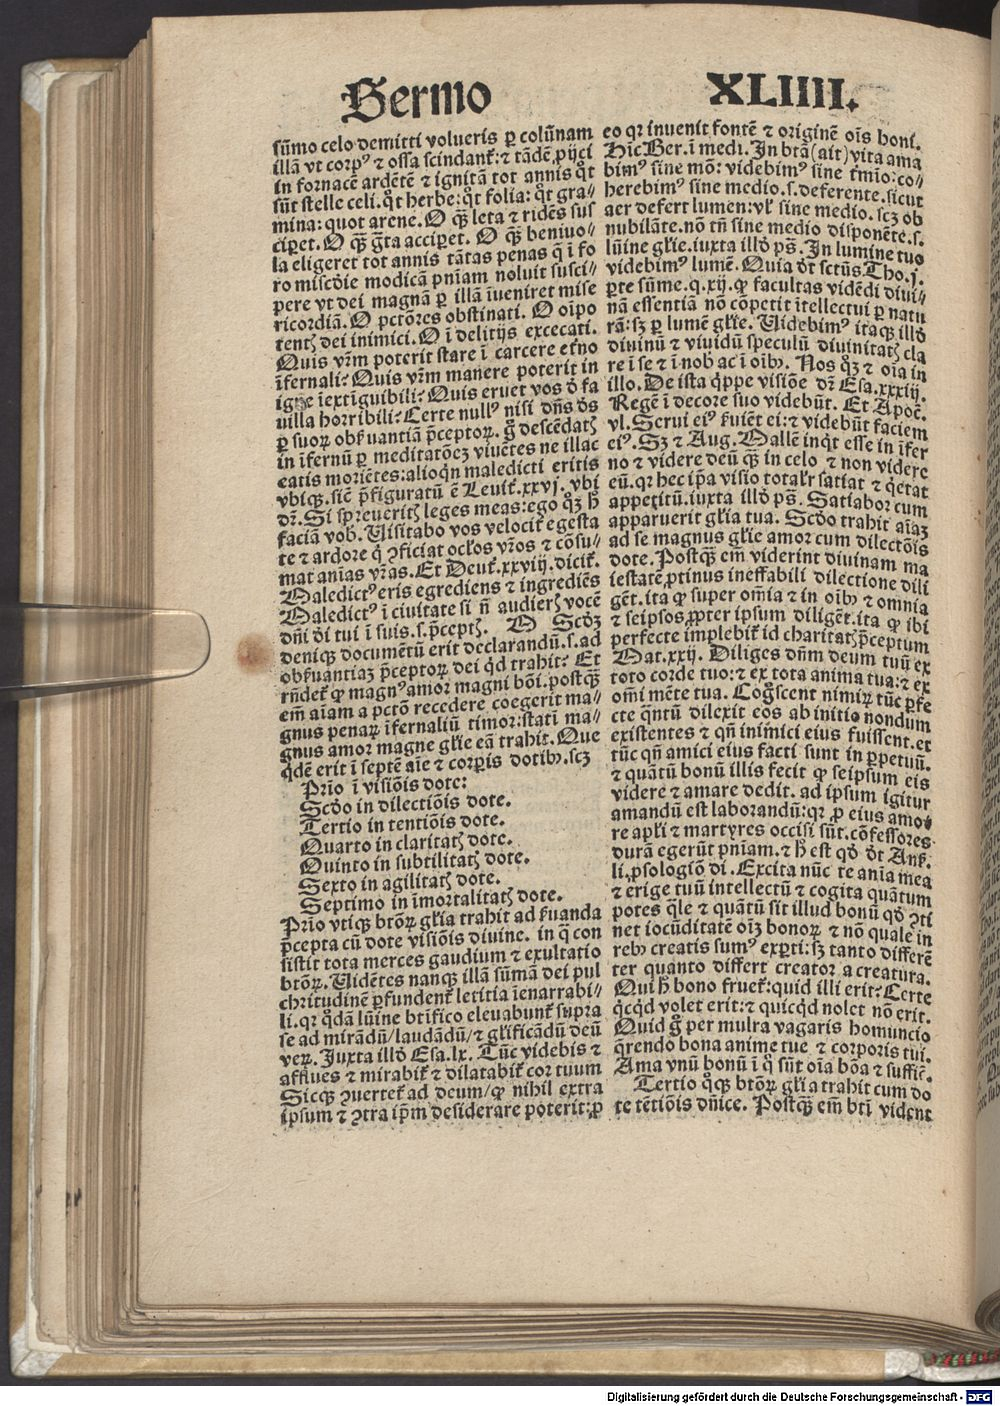 Sermo XLIIII.
sūmo celo demitti volueris ꝑ colūnam
illā vt corpꝰ ⁊ ossa scindant᷑: ⁊ tādē ꝓijci
in fornacē ardētē ⁊ ignitā tot annis qͦt
sūt stelle celi. qͦt herbe: qͦt folia: qͦt gra-
mina: quot arene. O qꝫ̄ leta ⁊ ridēs sus
ciꝑet. O qꝫ̄ gͣta acciꝑet. O qꝫ̄ beniuo//
la eligeret tot annis tātas penas q̄ ī fo
ro misc̄die modicā pn̄iam noluit susci//
pere vt dei magnā ꝑ illā īueniret mise
ricordiā. O pctōres obstinati. O oīpo
tentꝭ dei inimici. O ī delitijs excecati.
Quis vr̄m poterit stare ī carcere et̄no
īfernali? Quis vr̄m manere poterit in
igne īextīguibili? Quis eruet vos ð fa
uilla horribili? Certe nullꝰ nisi dn̄s ðs
ꝑ suoꝝ obẜuantiā p̄ceptoꝝ. gͦ descēdatꝭ
in īfernū ꝑ meditatōeꝫ viuētes ne illac
eatis moriētes: alioqͥn maledicti eritis
vbiqꝫ. sic̄ p̄figuratū ē Leuit᷑. xxvj. vbi
dr̄. Si spreueritꝭ leges meas: ego qͦꝫ h̄
faciā vob. Uisitabo vos velocit᷑ egesta
te ⁊ ardore qͥ ꝯficiat ocl̄os vr̄os ⁊ cōsu-
mat aniās vr̄as. Et Deut᷑. xxviij. dicit᷑.
Maledictꝰ eris egrediens ⁊ ingrediēs
Maledictꝰ ī ciuitate si n̄ audierꝭ vocē
dn̄i ði tui ī suis. s. p̄ceptꝭ. O Scd̄ꝫ
deniqꝫ documētū erit declarandū. s. ad
obẜuantiaꝫ p̄ceptoꝝ dei qͥd trahit? Et
rn̄det᷑ ꝙ magnꝰ amor magni bōi. postqꝫ̄
em̄ aīam a pctō recedere coegerit ma//
gnus penaꝝ īfernaliū timor: statī ma//
gnus amor magne gl̄ie eā trahit. Que
qͥdē erit ī septē aīe ⁊ corꝑis dotibꝫ. scꝫ
Prīo ī visiōis dote:
Scd̄o in dilectiōis dote.
Tertio in tentiōis dote.
Quarto in claritatꝭ dote.
Quinto in subtilitatꝭ dote.
Sexto in agilitatꝭ dote.
Septimo in īmortalitatꝭ dote.
Prīo vtiqꝫ btōꝝ gl̄ia trahit ad ẜuanda
p̄cepta cū dote visiōis diuine. in q̄ con
sistit tota merces gaudium ⁊ exultatio
btōꝝ. Uidētes nanqꝫ illā sūmā dei pul
chritudinē ꝑfundent᷑ letitia īenarrabi//
li. qꝛ qͣdā lūine btīfico eleuabunt᷑ supra
se ad mirādū/ laudādū/ ⁊ gl̄ificādū deū
veꝝ. Juxta illð Esa. lx. Tūc videbis ⁊
afflues ⁊ mirabit᷑ ⁊ dilatabit᷑ cor tuum
Sicqꝫ ꝯuertet᷑ ad deum/ ꝙ nihil extra
ipsum ⁊ ꝯtra ip̄m desiderare poterit: ꝓ
eo qꝛ inuenit fontē ⁊ originē oīs boni.
Hic Ber. ī medi. In btā (ait) vita ama
bimꝰ sine mō: videbimꝰ sine tm̄io: co//
herebimꝰ sine medio. s. deferente. sicut
aer defert lumen: vl᷑ sine medio. scꝫ ob
nubilāte. nō tn̄ sine medio disponēte. s.
lūine gl̄ie. iuxta illð ps̄. In lumine tuo
videbimꝰ lumē. Quia ðt sctūs Tho. j.
ꝑte sūme. q. xij. ꝙ facultas vidēdi diui//
nā essentiā nō cōpetit ītellectui ꝑ natu
rā: sꝫ ꝑ lumē gl̄ie. Uidebimꝰ itaqꝫ illð
diuinū ⁊ viuidū speculū diuinitatꝭ cla
re ī se ⁊ ī nob ac ī oībꝫ. Nos qͦꝫ ⁊ oīa in
illo. De ista qͥppe visiōe dr̄ Esa. xxxiij.
Regē ī decore suo videbūt. Et Apoc̄.
vl. Serui eiꝰ ẜuiēt ei: ⁊ videbūt faciem
eiꝰ. Sꝫ ⁊ Aug. Mallē inqͥt esse in īfer
no ⁊ videre deū qꝫ̄ in celo ⁊ non videre
eū. qꝛ hec ip̄a visio totalr̄ satiat ⁊ qͥetat
appetitū. iuxta illð ps̄. Satiabor cum
apparuerit gl̄ia tua. Scd̄o trahit aīaꝫ
ad se magnus gl̄ie amor cum dilectōis
dote. Postqꝫ̄ em̄ viderint diuinam ma
iestatē ꝓtinus ineffabili dilectione dili
gēt. ita ꝙ super om̄ia ⁊ in oībꝫ ⁊ omnia
⁊ seipsos ꝓpter ipsum diligēt. ita ꝙ ibi
perfecte implebit᷑ id charitatꝭ p̄ceptum
Mat. xxij. Diliges dn̄m deum tuū ex
toto corde tuo: ⁊ ex tota anima tua: ⁊ ex
om̄i mēte tua. Cogͦscent nimiꝝ tūc ꝑfe
cte qͣntū dilexit eos ab initio nondum
existentes ⁊ qn̄ inimici eius fuissent. et
tūc qn̄ amici eius facti sunt in ꝑpetuū.
⁊ quātū bonū illis fecit ꝙ seipsum eis
videre ⁊ amare dedit. ad ipsum igitur
amandū est laborandū: qꝛ ꝓ eius amo
re apl̄i ⁊ martyres occisi sūt. cōfessores
durā egerūt pn̄iam. ⁊ h̄ est qð ðt Anẜ.
li. ꝓsologiō di. Excita nūc te anīa mea
⁊ erige tuū intellectū ⁊ cogita quātum
potes qͣle ⁊ quātū sit illud bonū qð ꝯti
net iocūditatē oīꝫ bonoꝝ ⁊ nō quale in
rebꝫ creatis sumꝰ exꝑti: sꝫ tanto differē
ter quanto differt creator a creatura.
Qui h̄ bono fruet᷑: quid illi erit? Certe
qͥcqͥd volet erit: ⁊ quicqͥd nolet nō erit.
Quid gͦ per multa vagaris homuncio
q̄rendo bona anime tue ⁊ corporis tui.
Ama vnū bonū ī qͦ sūt oīa bōa ⁊ suffic̄.
Tertio qͦqꝫ btōꝝ gl̄ia trahit cum do
te tētiōis dn̄ice. Postqꝫ̄ em̄ btī vident
Digitalisierung gefördert durch die Deutsche Forschungsgemeinschaft - DFG